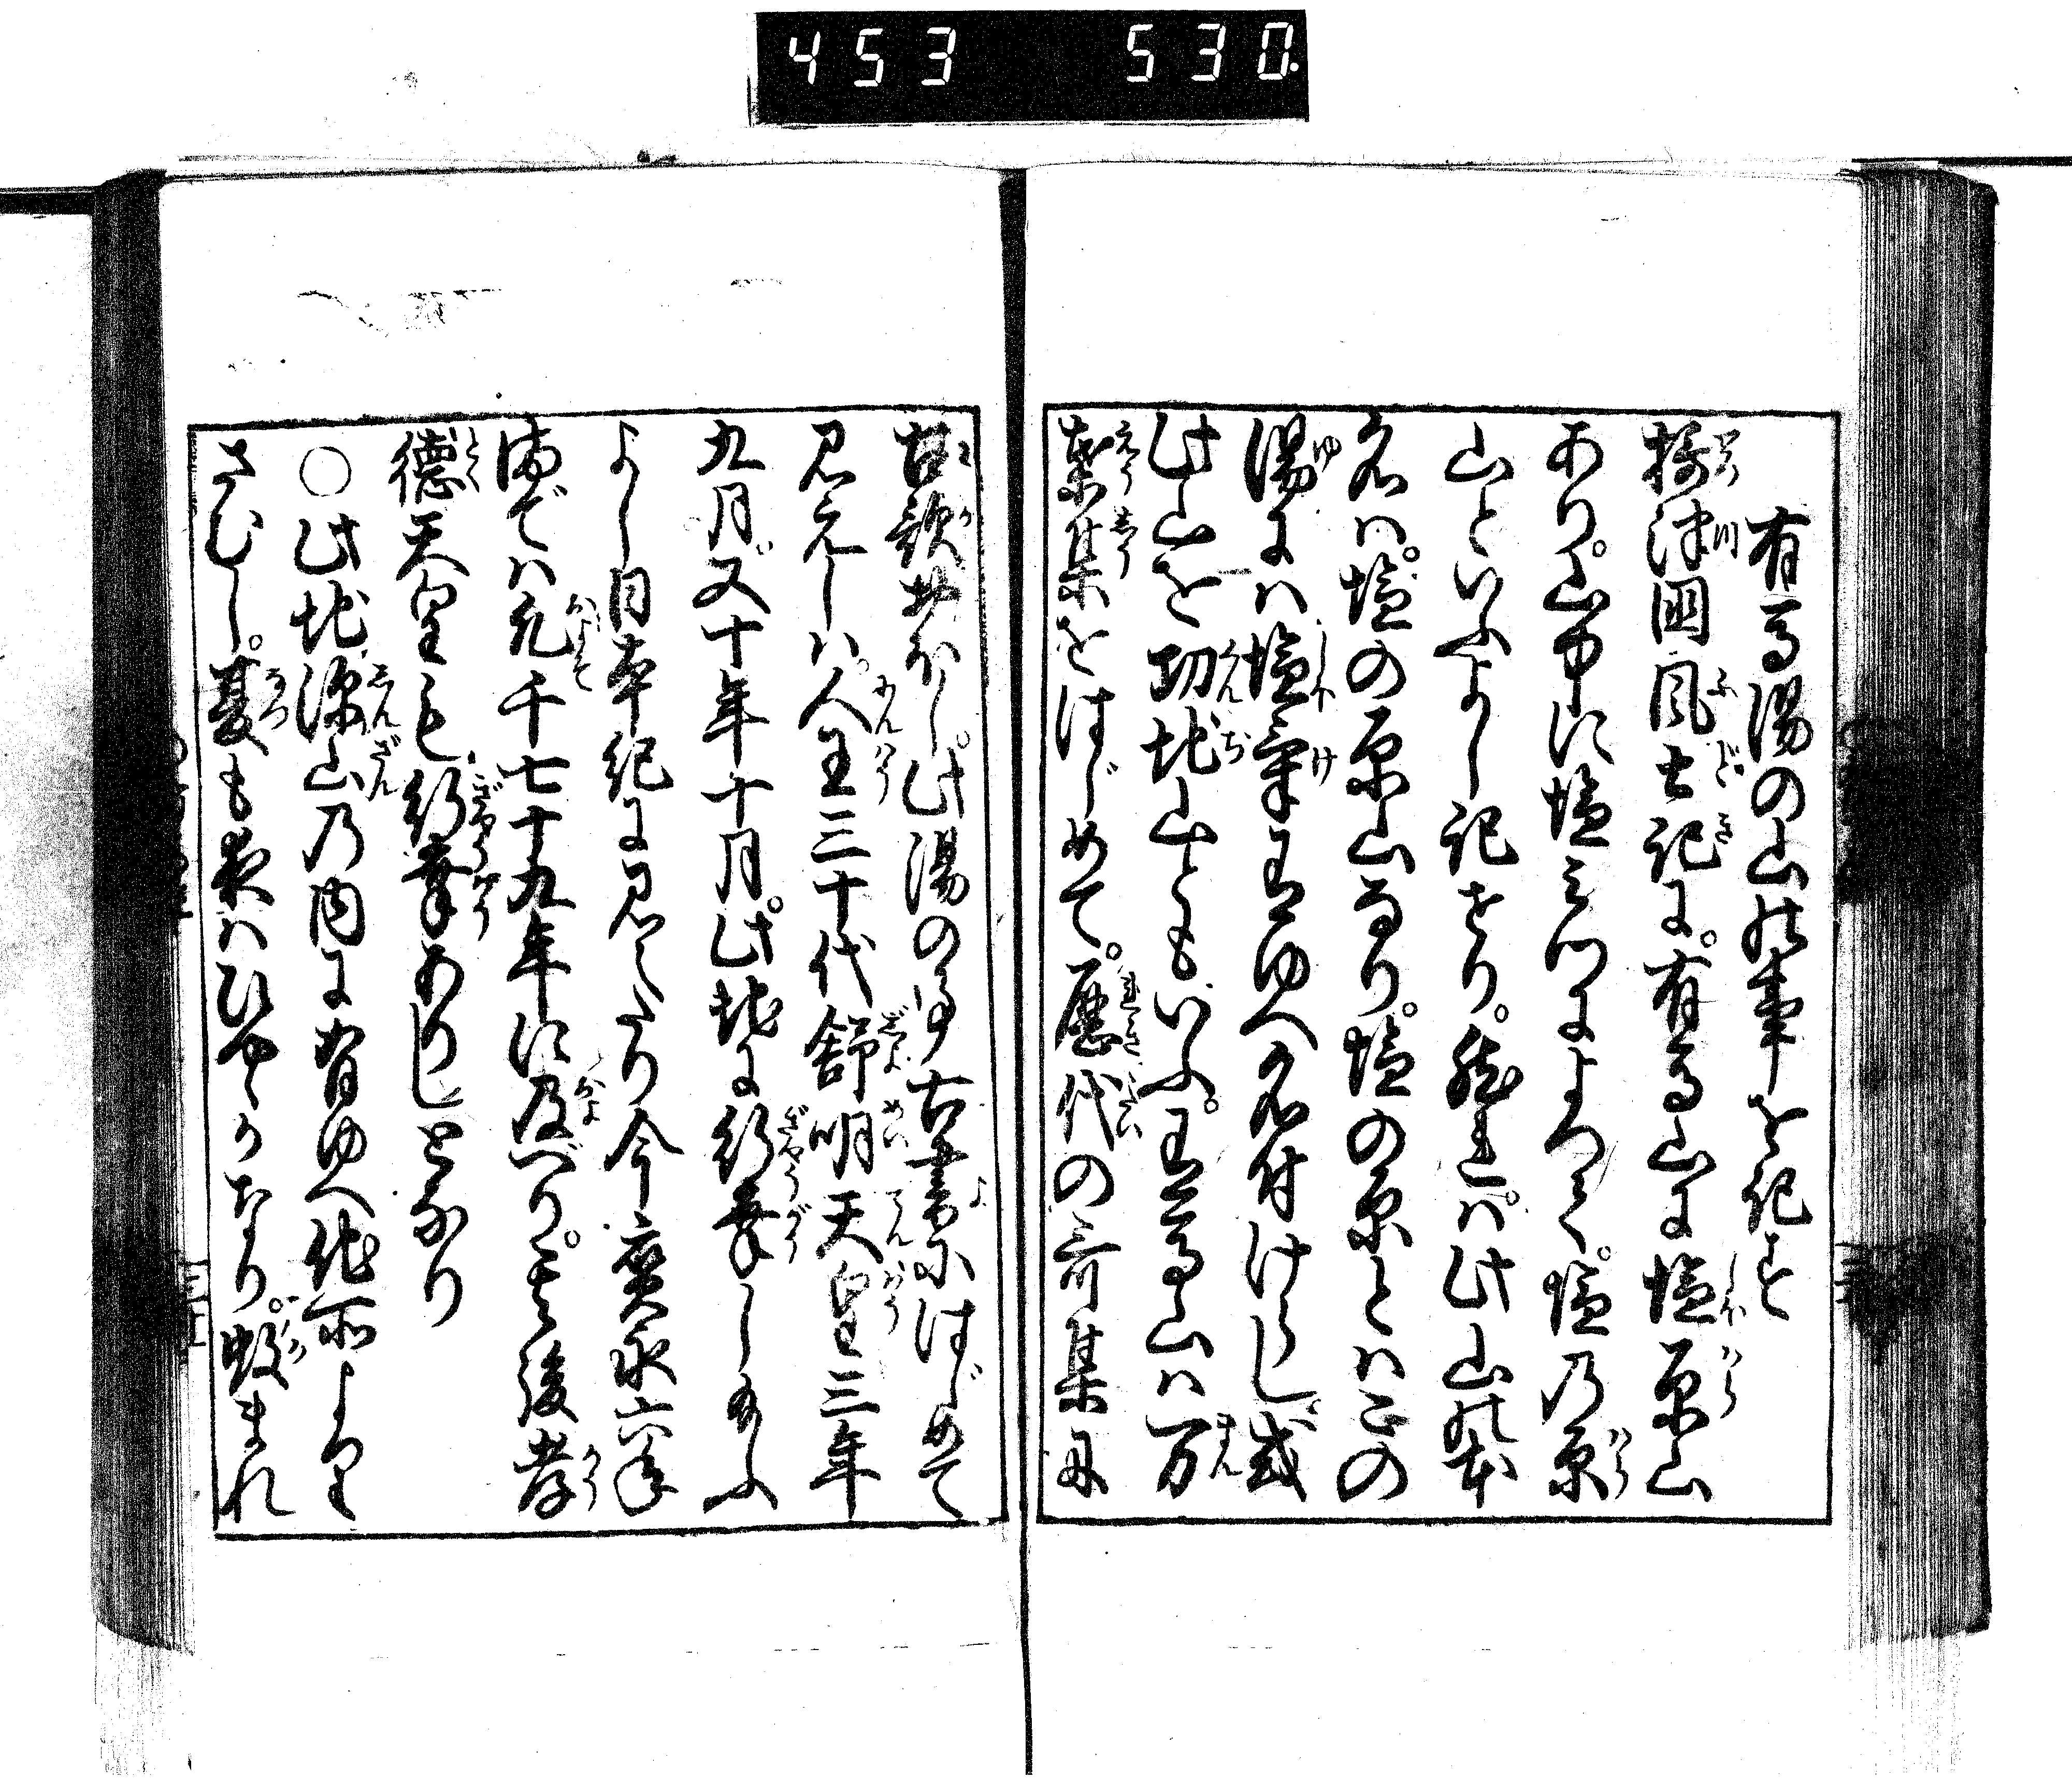 453 530.
有馬湯の山の事を記す
摂津国風土記に。有馬山に塩原山
あり。山中に塩みつによつて。塩乃原
山といふよし記せり。然れバ此山の本
名ハ。塩の原山なり。塩の原とハこの
湯にハ塩気有ゆへ名付けらし。或
此山を功地山ともいふ。有馬山ハ万
葉集をはじめて。歴代の哥集に
古歌おほし。此湯の事古書にはじめて
見えしハ。人王三十代舒明天皇三年
九月。又十年十月。此地に行幸し給ふ
よし日本紀に見えたり今宝永六年
まてハ凡千七十九年に及べり。其後孝
徳天皇も行幸ありしとなり
○此地深山乃内に有ゆへ他所より
さむし。夏も夜ハひややかなり。蚊まれ